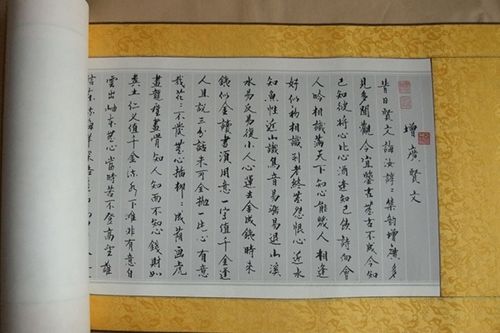 增廣賢文
昔日賢文誨汝諄〻集韵增廣多
見多聞觀今宜鑒古無古不成今知
己知彼將心比心酒逢知己飲詩向會
人吟相識滿天下知心能幾人相逢
好似初相識到老終無怨恨心近水
知魚性近山識鳥音易漲易退山溪
水易反易復小人心運去金成鐵時來
鐵似金讀書須用意一字值千金逢
人且說三分話未可全拋一片心有意
栽花〻不發無心插柳〻成蔭畫虎
畫龍難畫骨知人知面不知心錢財如
糞土仁義值千金流水下灘非有意白
雲出岫本無心當時若不登高望誰